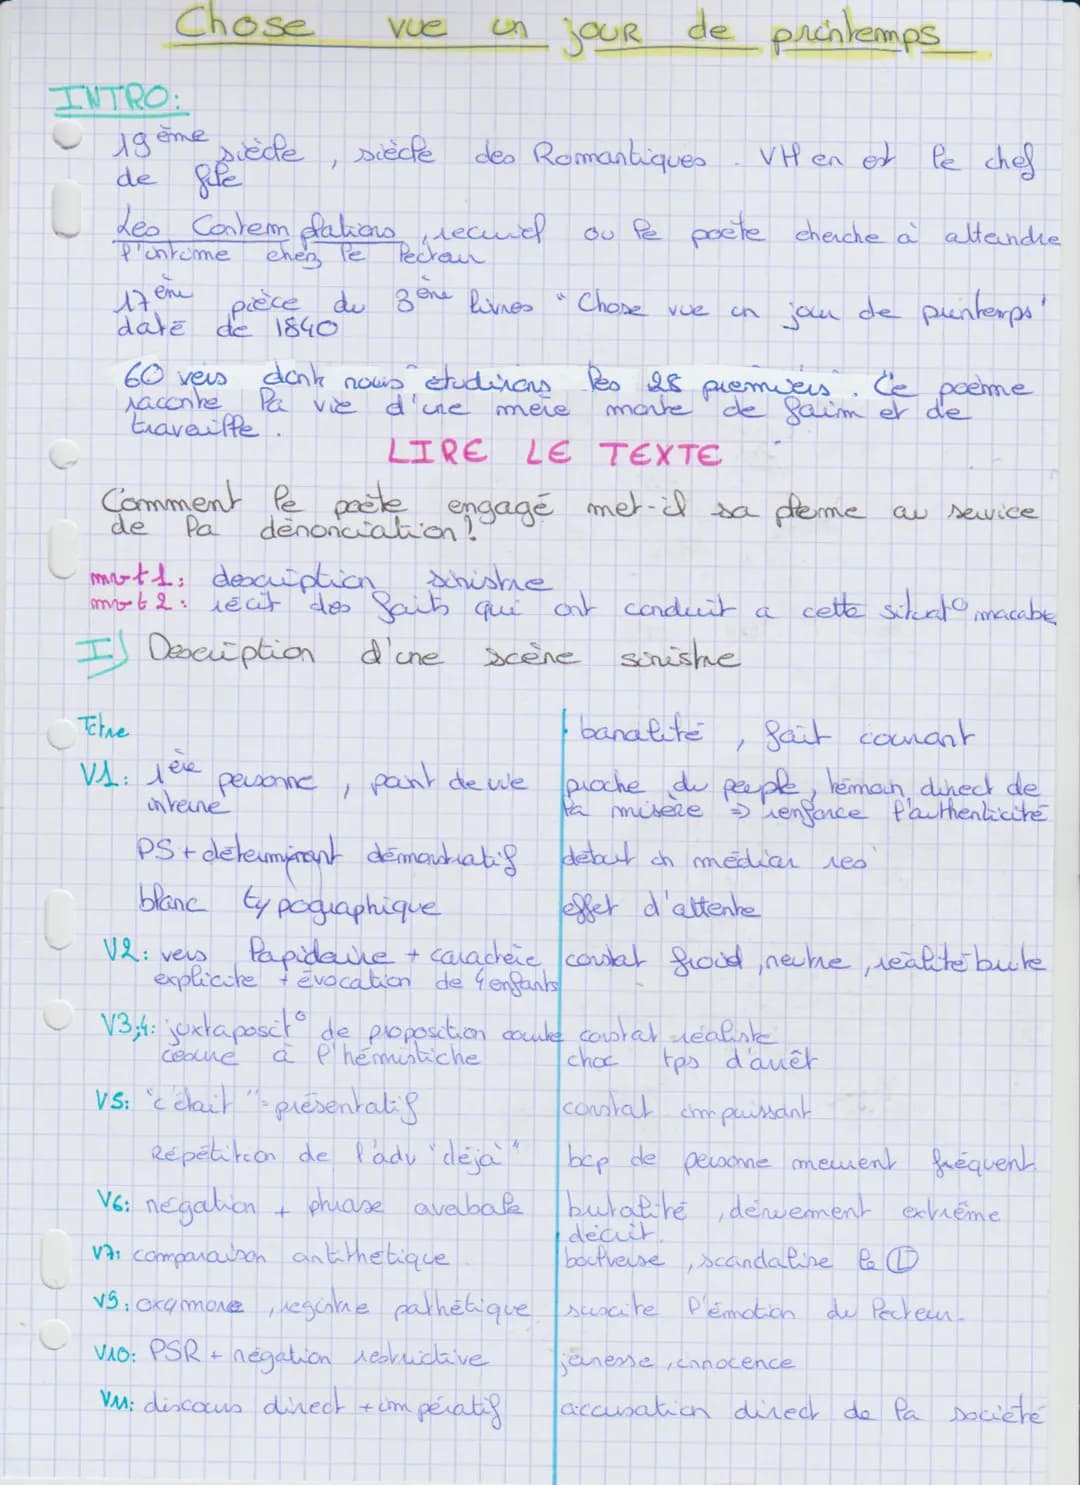 Chose vue un jour de printemps
INTRO:
19ème siècle, siècle des Romantiques. VH en est le chef
de file
Les Contemplations, recueil ou le poète cherche à atteindre
l'intime chez le lecteur
17ème pièce du 3ème livres "Chose vue un jour de printemps"
daté de 1840
60 vers dont nous étudirons les 28 premiers. Ce poème
raconte la vie d'une mère morte de faim et de
travaille.
LIRE LE TEXTE
Comment le poète engagé met-il sa plume au service
de la dénonciation?
mvt1: description sinistre
mvt2: récit des faits qui ont conduit a cette situat° macabre
I) Description d'une scène sinistre
Titre banalité, fait courant
V1: 1ère personne, point de vue proche du peuple, témoin direct de
interne la misère => renforce l'authenticité
PS + déterminant démonstratif début in médias res
blanc typographique effet d'attente
V2: vers lapidaire + caractère constat froid, neutre, réalité brute
explicite + évocation de 4 enfants
V3;4: juxtaposit° de proposition courte constat réaliste
césure à l'hémistiche choc tps d'arrêt
V5: "c'était" = présentatif constat impuissant
Répétition de l'adv "déjà" bcp de personne meurent fréquent
V6: négation + phrase averbale brutalité, dénuement extrême
décrit.
V7: comparaison antithétique bouleverse, scandalise le L
V9: oxymore, registre pathétique suscite l'émotion du lecteur.
V10: PSR + négation restrictive jeunesse, innocence
V11: discours direct + impératif accusation direct de la société